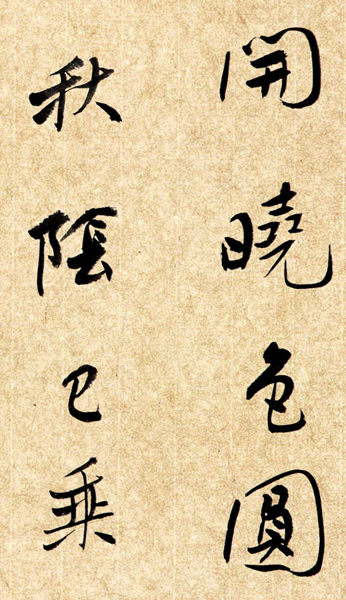 開曉色圓
秋陰已乗